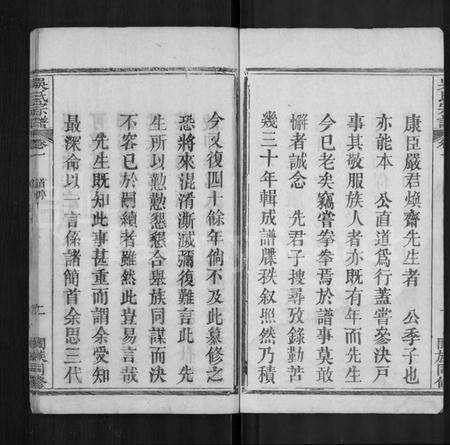 康臣嚴君煥齋先生者　公季子也
亦能本　公直道爲行蓋嘗參決戸
事其敬服族人者亦既有年而先生
今已老矣竊嘗拳拳焉於譜事莫敢
懈者誠念　先君子搜尋攷錄勤苦
幾三十年輯成譜牒秩叙照然乃積
今又復四十餘年倘不及此纂修之
恐將來混淆漸滅彌復難言此　先
生所以懃懃懇懇合舉族同謀而決
不容已於兩續者雖然此豈易言哉
先生既知此事甚重而謂余受知
最深俞以一言係諸簡首余思三代
吳氏宗譜
卷一